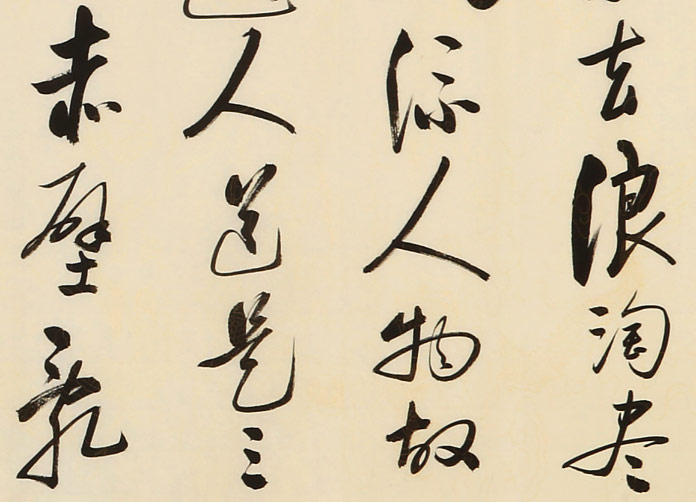 去浪淘尽
流人物故
人道是三
赤壁亂